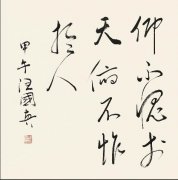 仰不愧於
天俯不怍
於人
甲午汪國真